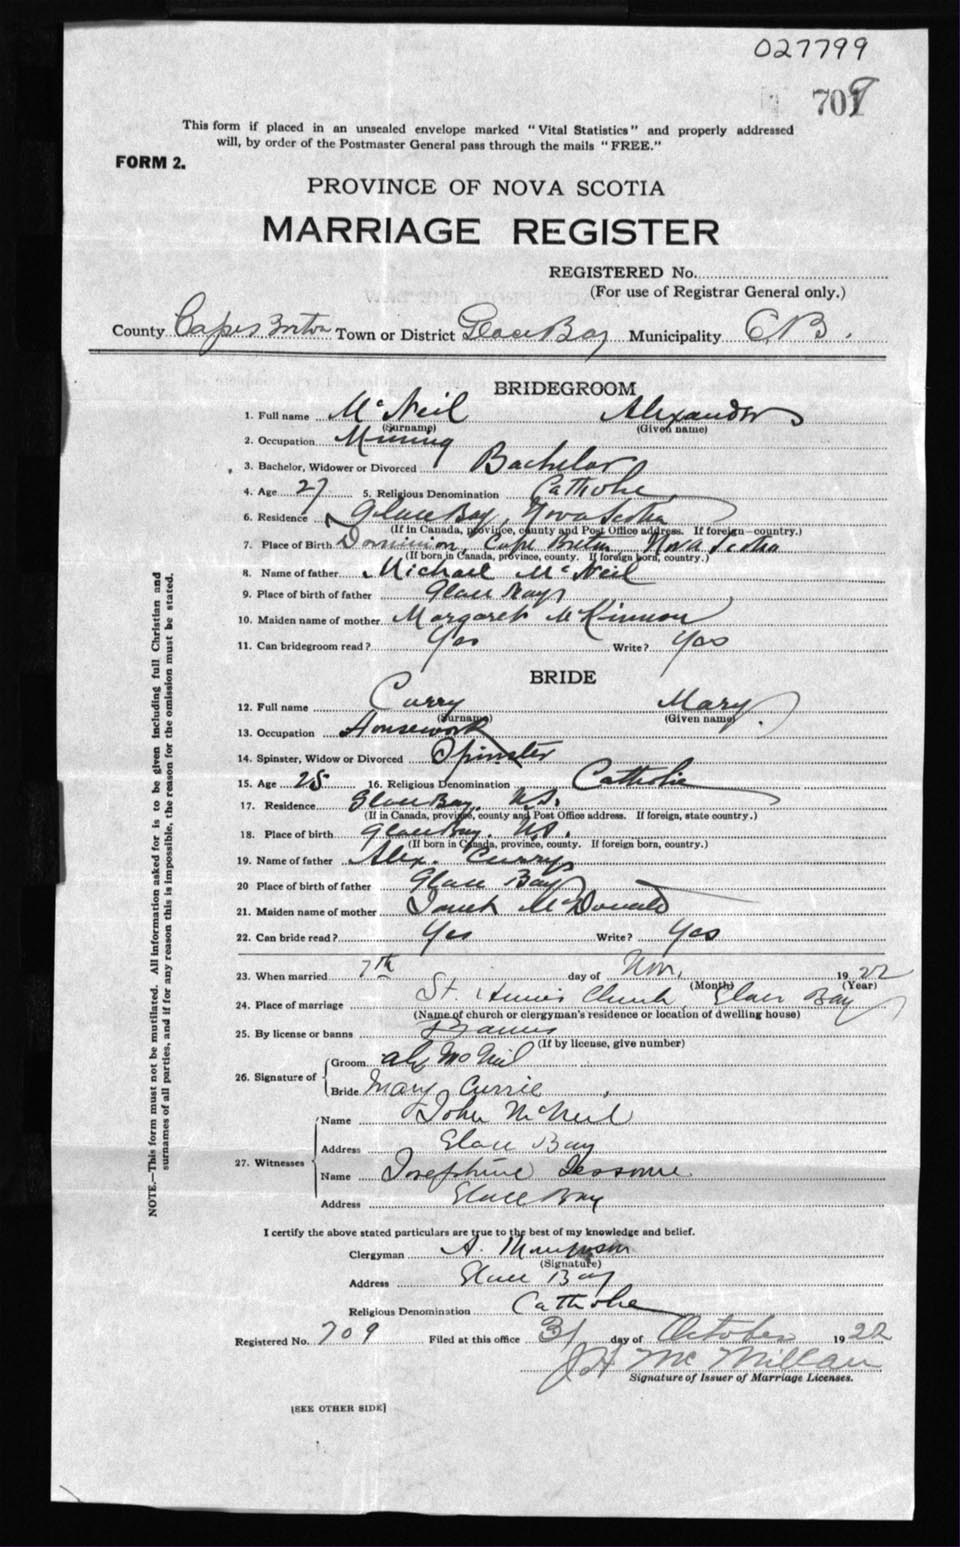 027799
709
This form if placed in an unsealed envelope marked "Vital Statistics" and properly addressed
will, by order of the Postmaster General pass through the mails "FREE."
FORM 2.
PROVINCE OF NOVA SCOTIA
MARRIAGE REGISTER
REGISTERED No.
(For use of Registrar General only.)
County Cape Breton Town or District Glace Bay Municipality C.B.
BRIDEGROOM
1. Full name McNeil Alexander
(Surname) (Given name)
2. Occupation Mining
3. Bachelor, Widower or Divorced Bachelor
4. Age 27 5. Religious Denomination Catholic
6. Residence Glace Bay, Nova Scotia
(If in Canada, province, county and Post Office address. If foreign—country.)
7. Place of Birth Dominion, Cape Breton Nova Scotia
(If born in Canada, province, county. If foreign born, country.)
8. Name of father Michael McNeil
9. Place of birth of father Glace Bay
10. Maiden name of mother Margaret McKinnon
11. Can bridegroom read? Yes Write? Yes
BRIDE
12. Full name Curry Mary
(Surname) (Given name)
13. Occupation Housework
14. Spinster, Widow or Divorced Spinster
15. Age 25 16. Religious Denomination Catholic
17. Residence Glace Bay. N.S.
(If in Canada, province, county and Post Office address. If foreign, state country.)
18. Place of birth Glace Bay. N.S.
(If born in Canada, province, county. If foreign born, country.)
19. Name of father Alex. Curry
20 Place of birth of father Glace Bay
21. Maiden name of mother Janet McDonald
22. Can bride read? Yes Write? Yes
23. When married 7th day of Nov. 1922
(Month) (Year)
24. Place of marriage St. Anne's Church, Glace Bay
(Name of church or clergyman's residence or location of dwelling house)
25. By license or banns Banns
(If by license, give number)
26. Signature of
Groom Alex McNeil
Bride Mary Currie
27. Witnesses
Name John McNeil
Address Glace Bay
Name Josephine
Address Glace Bay
I certify the above stated particulars are true to the best of my knowledge and belief.
Clergyman A.
(Signature)
Address Glace Bay
Religious Denomination Catholic
Registered No. 709 Filed at this office 31 day of October 1922
J H McMillan
Signature of Issuer of Marriage Licenses.
[SEE OTHER SIDE]
NOTE.—This form must not be mutilated. All information asked for is to be given including full Christian and
surnames of all parties, and if for any reason this is impossible, the reason for the omission must be stated.